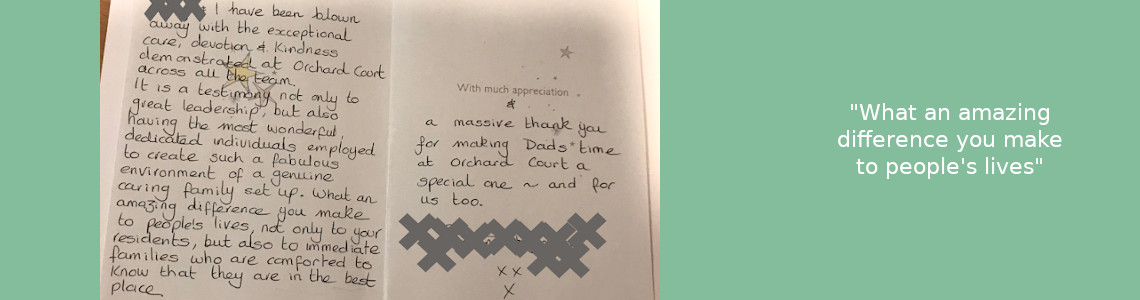 I have been blown
away with the exceptional
care, devotion & Kindness
demonstrated at Orchard Court
across all the team.
It is a testimony not only to
great leadership, but also
having the most wonderful,
dedicated individuals employed
to create such a fabulous
environment of a genuine
caring family set up. What an
amazing difference you make
to people's lives, not only to your
residents, but also to immediate
families who are comforted to
know that they are in the best
place.
With much appreciation
&
a massive thank you
for making Dads' time
at Orchard Court a
special one ~ and for
us too.
x x
x
"What an amazing
difference you make
to people's lives"